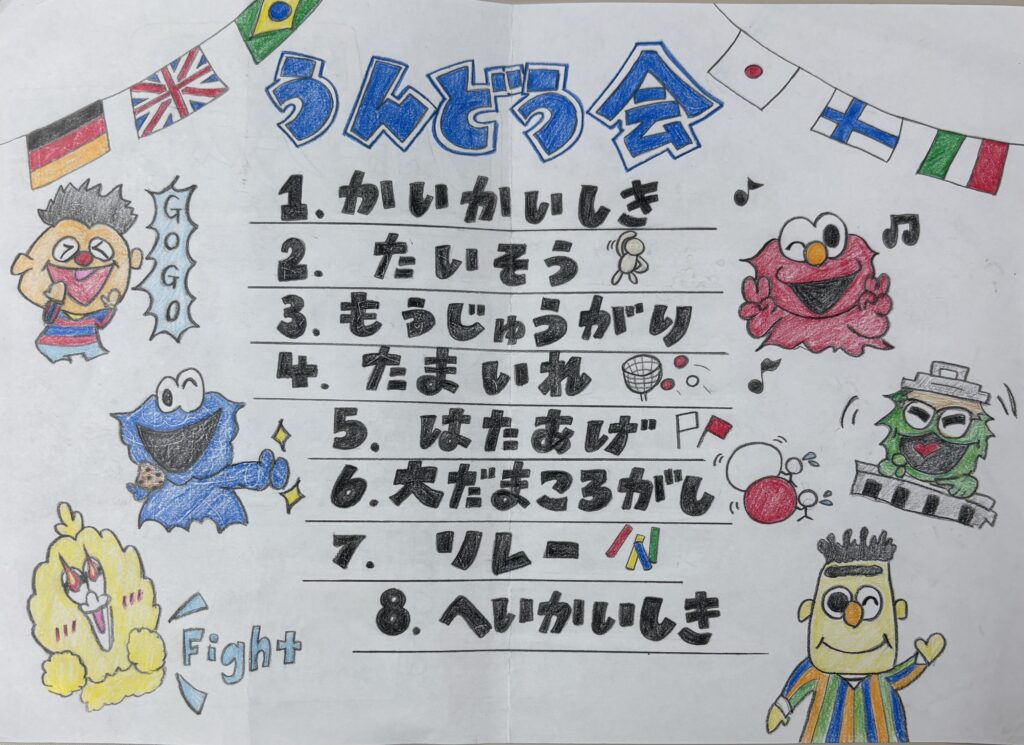 うんどう会
1. かいかいしき
2. たいそう
3. もうじゅうがり
4. たまいれ
5. はたあげ
6. 大だまころがし
7. リレー
8. へいかいしき
GoGo
Fight